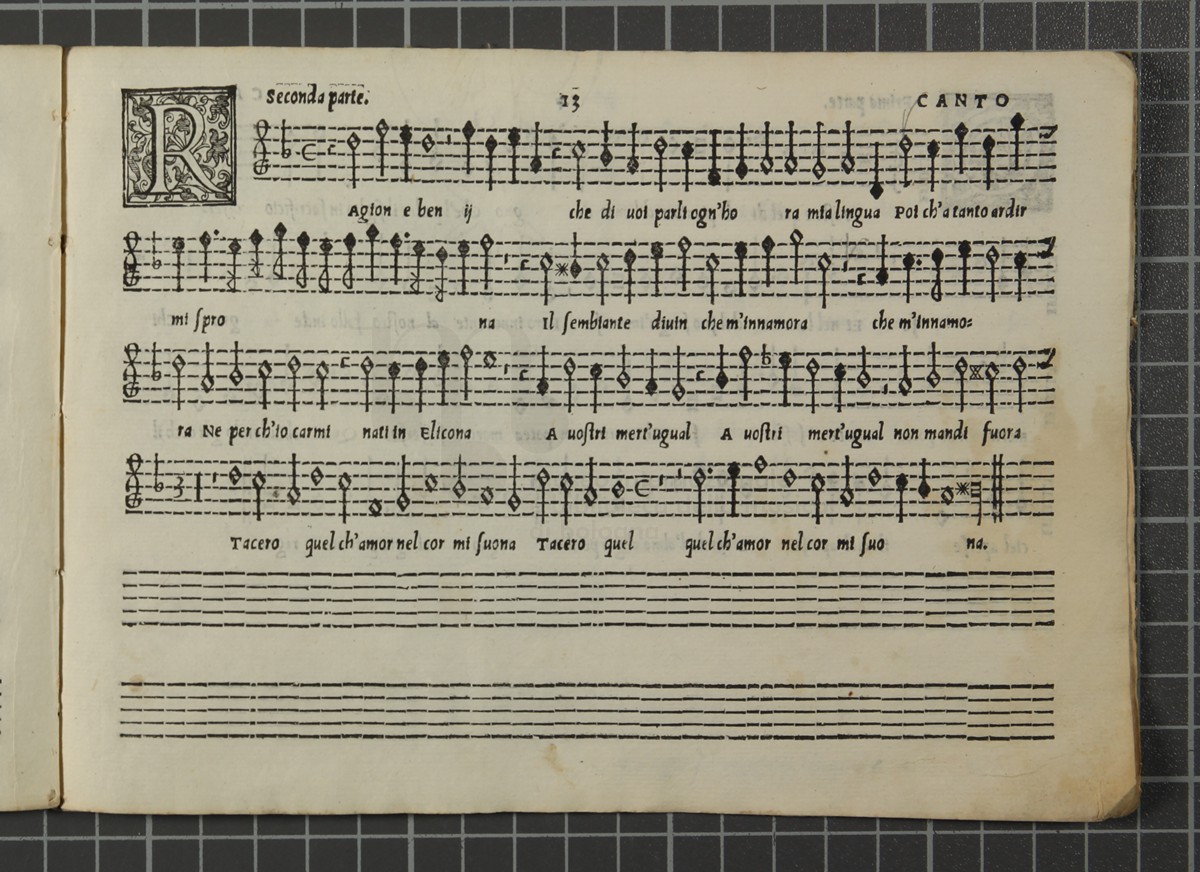 Seconda parte. 13 CANTO
RAgion e ben ij che di uoi parli ogn'ho ra mia lingua Poi ch'a tanto ardir
mi ſpro na Il ſembiante diuin che m'innamora che m'innamo=
ra Ne per ch'io carmi nati in Elicona A uoſtri mert'ugual A uoſtri mert'ugual non mandi fuora
Tacero quel ch'amor nel cor mi ſuona Tacero quel quel ch'amor nel cor mi ſuo na.